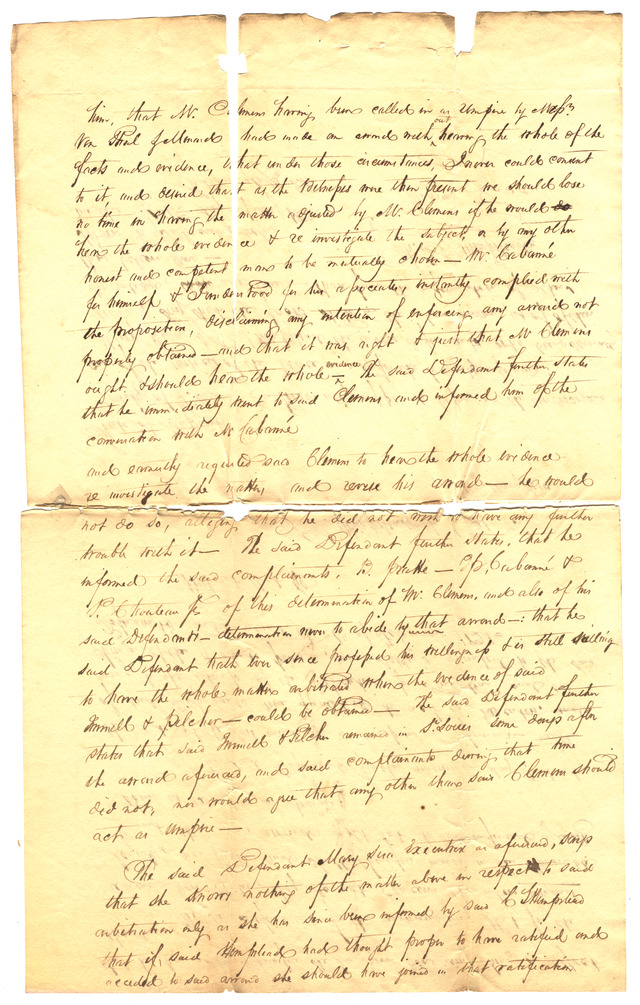 him, that Mr. Clemens having been called in as Umpire by Messrs
Von Phul & Menard had made an award without hearing the whole of the
facts and evidence, that under those circumstances, I never could consent
to it, and desired that as the Witnesses were then present we should lose
no time in having the matter adjusted by Mr. Clemens if he would
hear the whole evidence & re investigate the subject, or by any other
honest and competent man to be mutually chosen — Mr. Cabanné
for himself & I understood for his associates, instantly complied with
the proposition, disclaiming any intention of enforcing any award not
properly obtained — and that it was right & just that Mr Clemens
ought & should hear the whole evidence — The said Defendant further States
that he immediately went to said Clemens and informed him of the
conversation with Mr Cabanné
and earnestly requested said Clemens to hear the whole evidence
re investigate the matter, and revise his award — he would
not do so, alleging that he did not wish to have any further
trouble with it — The said Defendant further States, that he
informed the said complainants, B. Pratte — J P. Cabanné &
P. Chouteau Jr of this determination of Mr. Clemens, and also of his
said Defendant's — determination never to abide by that award —: that he
said Defendant hath ever since professed his willingness & is still willing
to have the whole matter arbitrated when the evidence of said
Immell & Pilcher — could be obtained — The said Defendant further
states that said Immell & Pilcher remained in St. Louis some days after
the award aforesaid, and said complainants during that time
did not, nor would agree that any other than said Clemens should
act as Umpire —
The said Defendant Mary Lisa Executrix as aforesaid, says
that she Knows nothing of the matter above in respect to said
arbitration only as she has since been informed by said C S Hempstead
that if said Hempstead had thought proper to have ratified and
acceded to said award she should have joined in that ratification